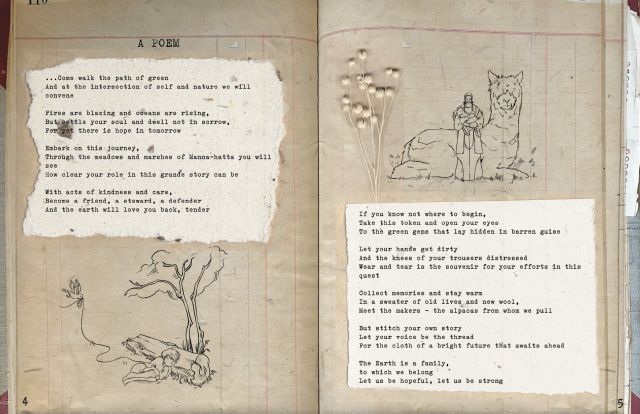 110
A POEM
...Come walk the path of green
And at the intersection of self and nature we will
convene
Fires are blazing and oceans are rising,
But settle your soul and dwell not in sorrow,
For yet there is hope in tomorrow
Embark on this journey,
Through the meadows and marshes of Manna-hatts you will
see
How clear your role in this grande story can be
With acts of kindness and care,
Become a friend, a steward, a defender
And the earth will love you back, tender
4
If you know not where to begin,
Take this token and open your eyes
To the green gems that lay hidden in barren guise
Let your hands get dirty
And the knees of your trousers distressed
Wear and tear is the souvenir for your efforts in this
quest
Collect memories and stay warm
In a sweater of old lives and new wool,
Meet the makers - the alpacas from whom we pull
But stitch your own story
Let your voice be the thread
For the cloth of a bright future that awaits ahead
The Earth is a family,
to which we belong
Let us be hopeful, let us be strong
5